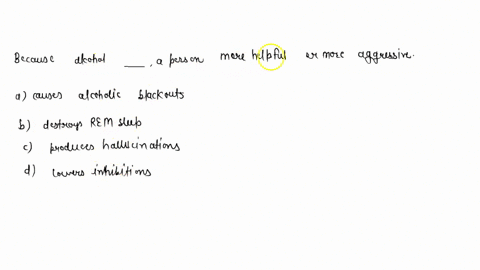 Because alcohol ___, a person more helpful or more aggressive.
a) causes alcoholic blackouts
b) destroys REM sleep
c) produces hallucinations
d) lowers inhibitions